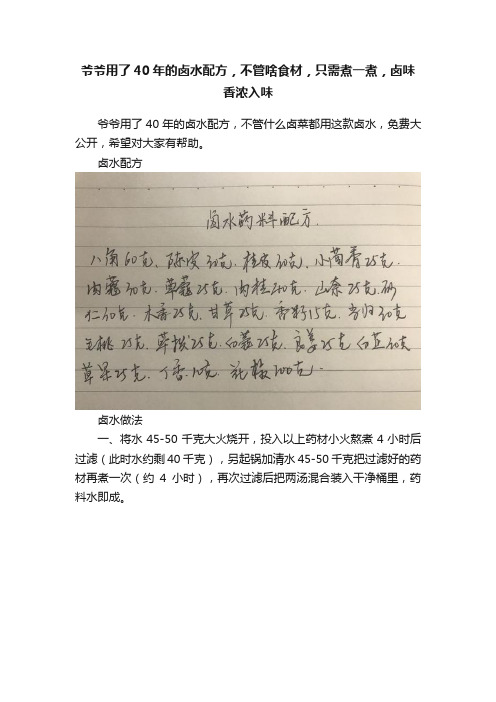 爷爷用了40年的卤水配方，不管啥食材，只需煮一煮，卤味
香浓入味
爷爷用了40年的卤水配方，不管什么卤菜都用这款卤水，免费大
公开，希望对大家有帮助。
卤水配方
卤水药料配方.
八角60克、陈皮30克、桂皮30克、小茴香25克.
肉蔻30克. 草蔻25克. 肉桂 山奈25克. 砂
仁 木香25克. 甘草25克. 香籽15克. 当归30克
25克. 荜拨25克. 白蔻25克. 良姜25克 白芷
草果25克. 丁香10克. 花椒100克.
卤水做法
一、将水45-50千克大火烧开，投入以上药材小火熬煮4小时后
过滤（此时水约剩40千克），另起锅加清水45-50千克把过滤好的药
材再煮一次（约4小时），再次过滤后把两汤混合装入干净桶里，药
料水即成。